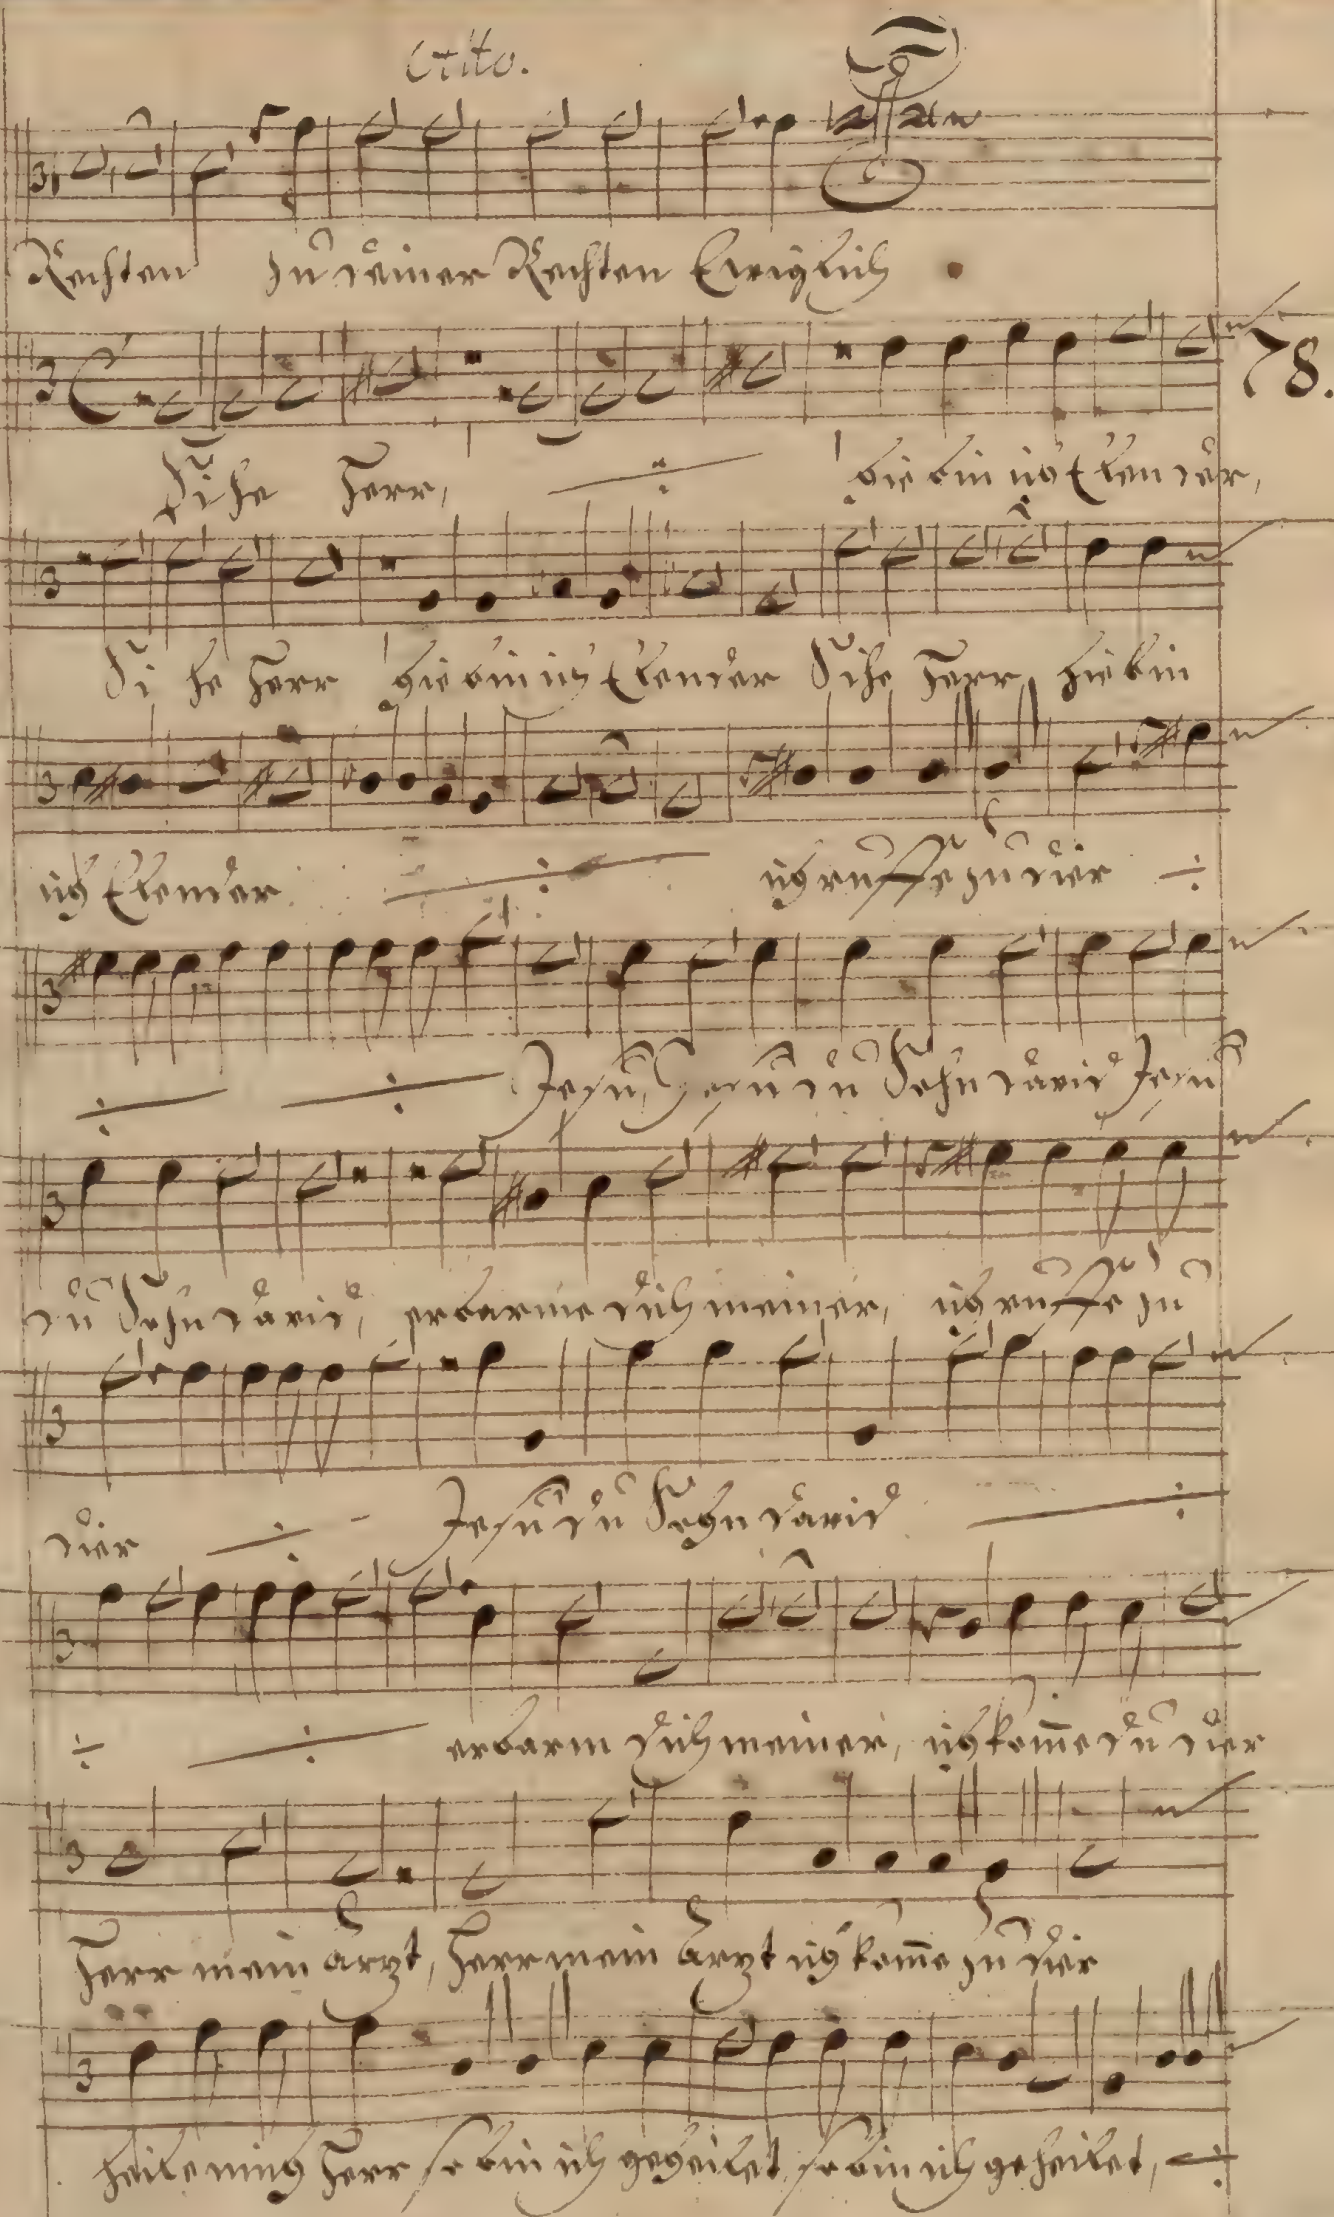 Alto.
Rechten in deiner Rechten Ewiglich
78.
Sihe Herr, hie bin ich Elender,
Sihe Herr hie bin ich Elender Sihe Herr, hie bin
ich Elender ich ruffe zu dier
Jesu, Jesu du Sohn david Jesu
du Sohn david, erbarme dich meiner, ich ruffe zu
dier Jesu du Sohn david
erbarm dich meiner, ich kom̄e zu dier
Herr mein Arzt, Herr mein Arzt ich kom̄e zu dier
heile mich Herr so bin ich geheilet, so bin ich geheilet,